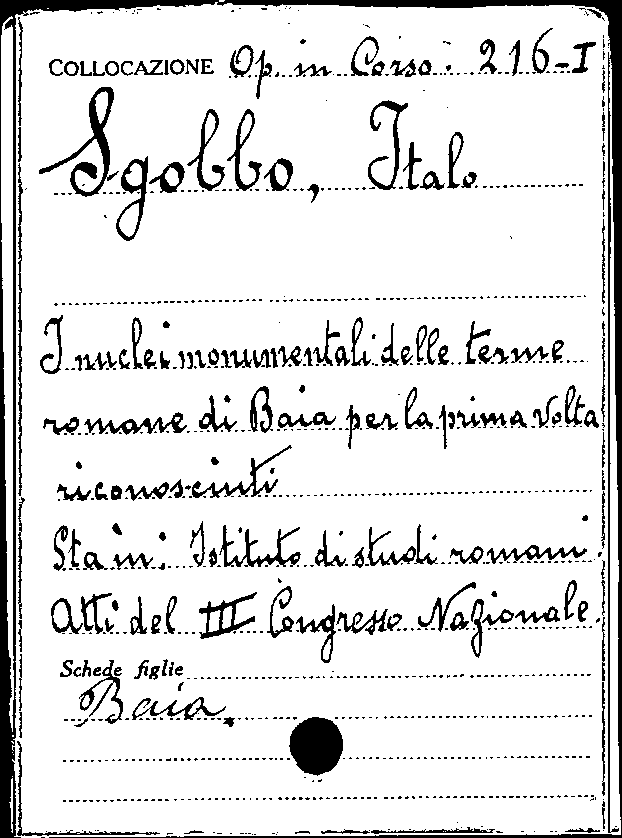 COLLOCAZIONE Op. in Corso. 216-I
Sgobbo, Italo
I nuclei monumentali delle terme
romane di Baia per la prima volta
riconosciuti
Sta in: Istituto di studi romani.
Atti del III Congresso Nazionale.
Schede figlie
Baia.